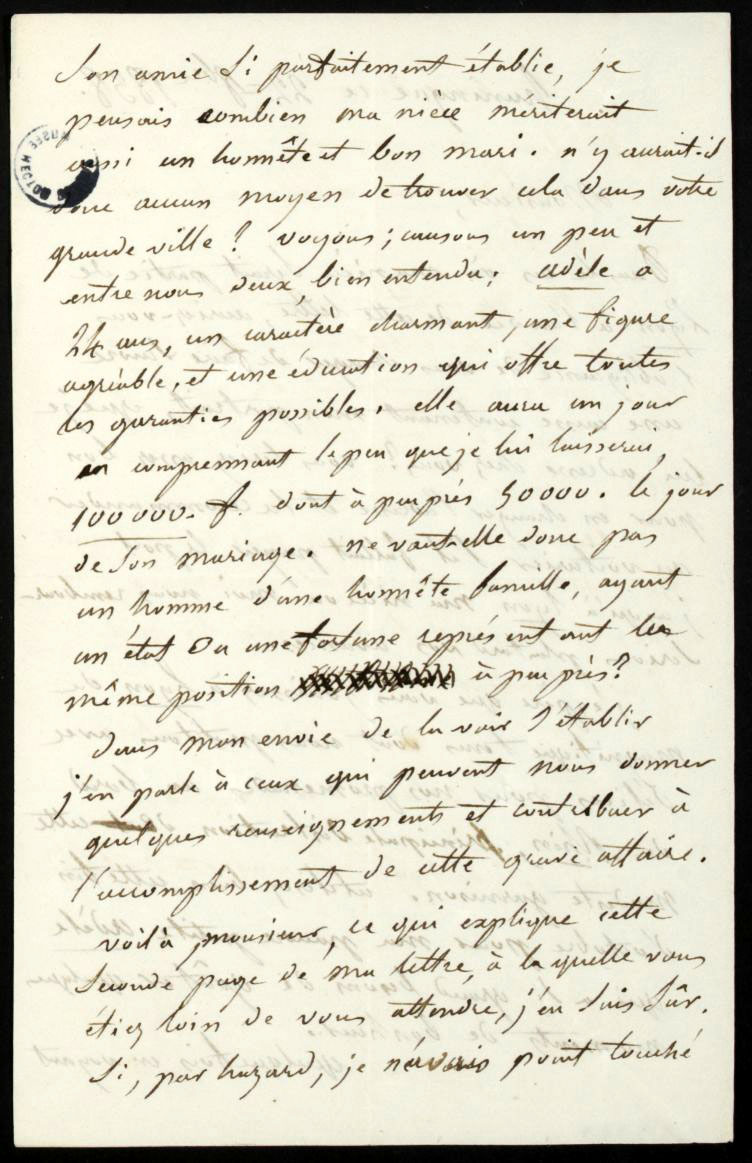 Son amie si parfaitement établie, je
pensais combien ma nièce mériterait
aussi un honnête et bon mari. n'y aurait-il
donc aucun moyen de trouver cela dans votre
grande ville ? voyons ; causons un peu et
entre nous deux, bien entendu ; adèle a
24 ans, un caractère charmant, une figure
agréable, et une éducation qui offre toutes
les garanties possibles. elle aura un jour
en comprennant le peu que je lui laisserai,
100 000. f. dont à peu près 50000. le jour
de son mariage. ne vaut-elle donc pas
un homme d'une honnête famille, ayant
un état ou une fortune représentant la
même position à peu près ?
dans mon envie de la voir s'établir
j'en parle à ceux qui peuvent nous donner
quelques renseignements et contribuer à
l'accomplissement de cette grave affaire.
voilà, monsieur, ce qui explique cette
seconde page de ma lettre, à la quelle vous
étiez loin de vous attendre, j'en suis sûr.
Si, par hazard, je n'avais point touché